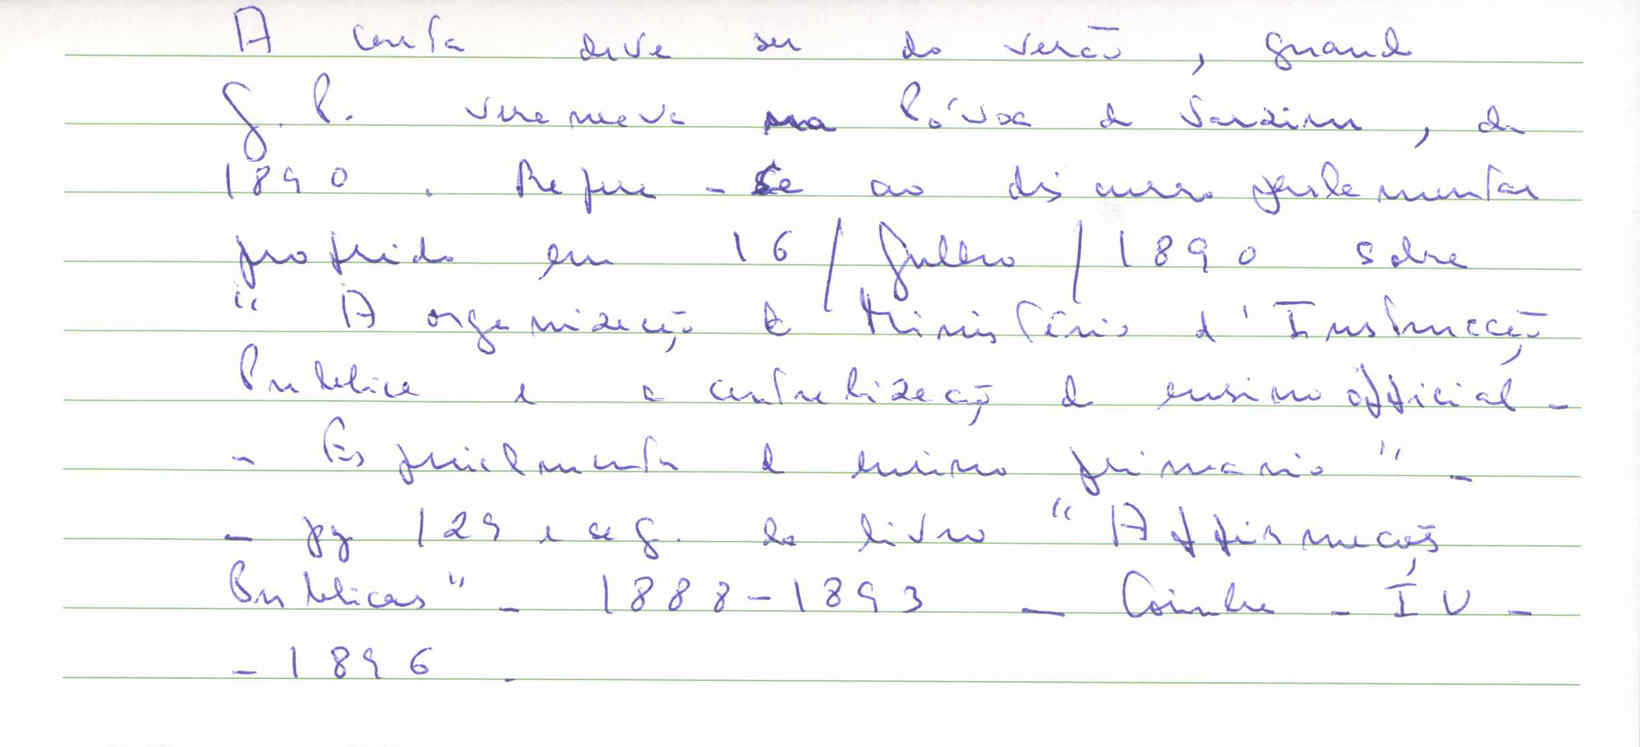 A carta deve ser do verão, quando
J. P. veraneava na Póvoa de Varzim, de
1890. Refere-se ao discurso parlamentar
proferido em 16/Julho/1890 sobre
"A organização do Ministério d'Instrucção
Publica e a centralização do ensino official -
- Especialmente do ensino primario" -
- pg 129 e seg. do livro "Affirmações
Publicas" - 1888-1893 - Coimbra - IV -
- 1896.